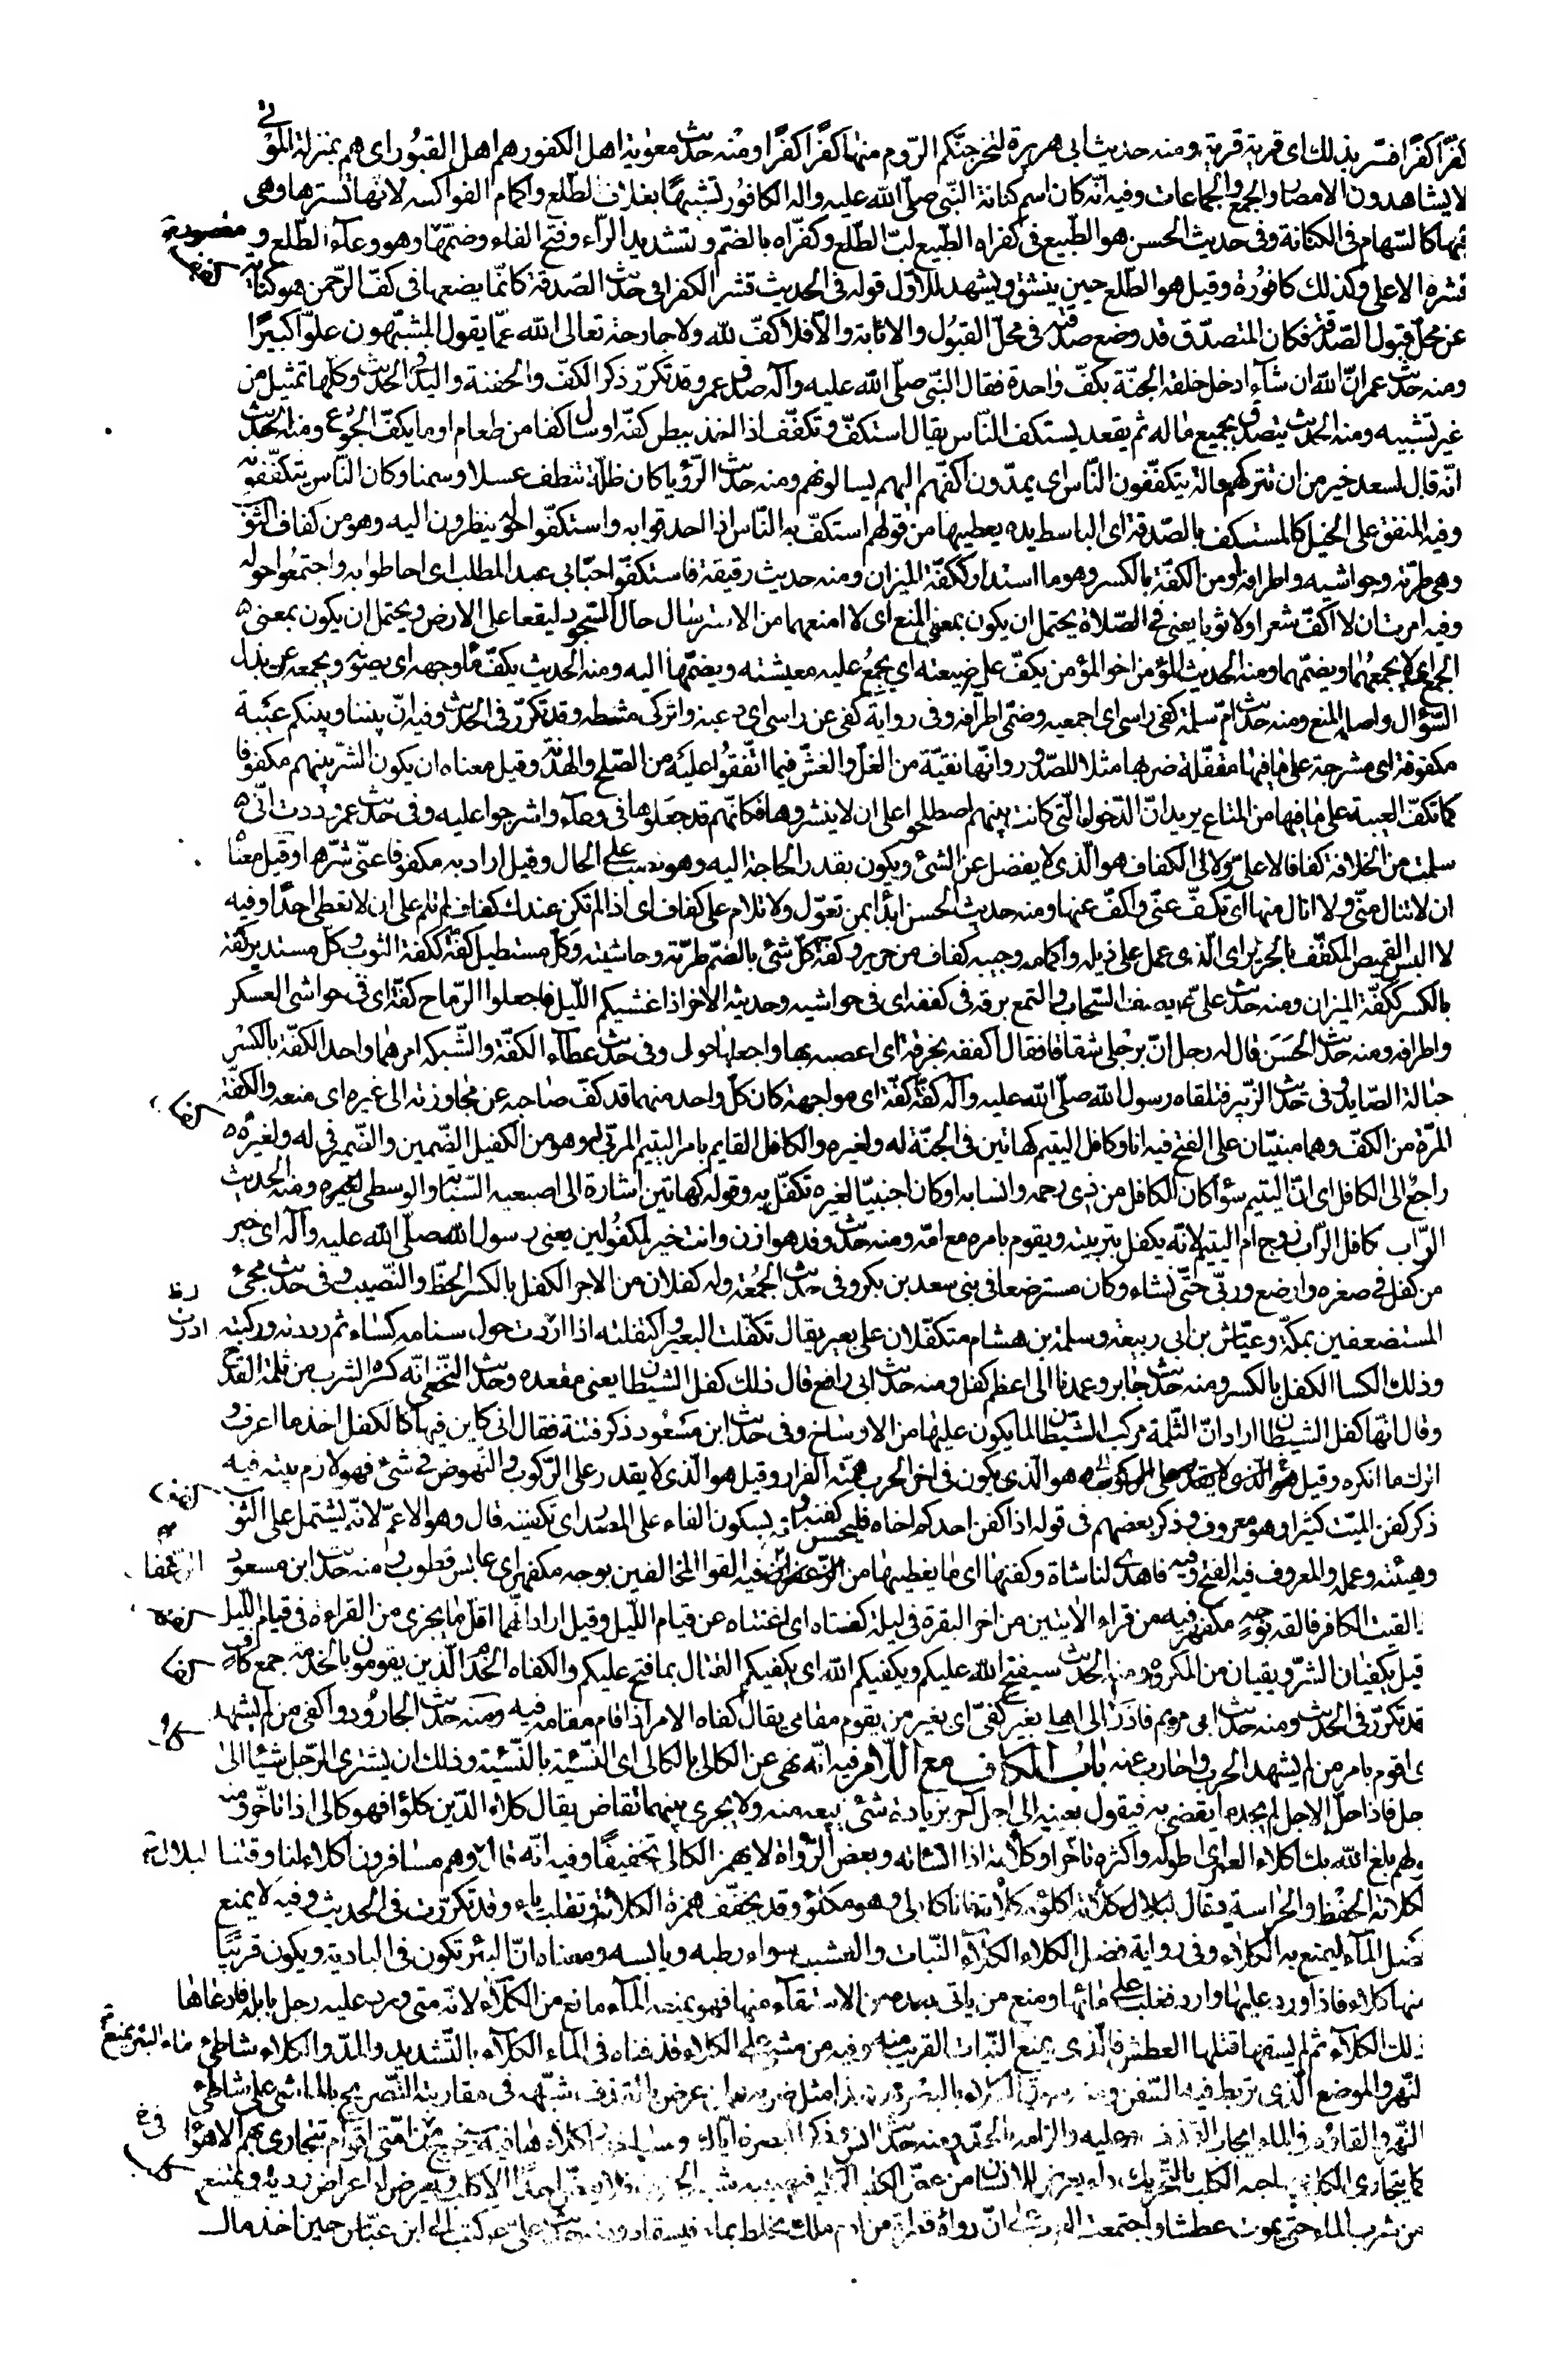 كفرًا كفرًا فسّر بذلك اى قرية قرية ومنه حديث ابى هريرة لتخرجنّكم الرّوم منها كفرًا كفرًا ومنه حديث معوية اهل الكفور هم اهل القبُور اى هم بمنزلة الموتى
لا يشاهدون الامصار والجمع والجماعات وفيه انّه كان اسم كنانة النّبى صلّى الله عليه واله الكافور تشبيهًا بغلاف الطّلع واكمام الفواكه لانها تسترها وهى
فيها كالسّهام فى الكنانة وفى حديث الحسن هو الطّبيع فى كفراه الطّبيع لبّ الطّلع وكفرّاه بالضمّ وتشديد الرّاء وفتح الفاء وضمّها وهو وعاء الطّلع و مقصورة
قشره الاعلى وكذلك كافورة وقيل هو الطّلع حين ينشق ويشهد للاوّل قوله فى الحديث قشر الكفرى حديث الصّدقة كانّما يضعها فى كفّ الرّحمن هو كناية
عن محلّ قبول الصّدقة فكان المتصدّق قد وضع صدقته فى محلّ القبُول والاثابة والّا فلا كفّ لله ولا جارحة تعالى الله عمّا يقول المشبّهون علوّا كبيرًا
ومنه حديث عمر انّ الله ان شآء ادخل خلقه الجنّة بكفّ واحدة فقال النّبى صلّى الله عليه وآله صدق عمر وقد تكرّر ذكر الكفّ والحفنة واليد فى الحديث وكلّها تمثيل من
غير تشبيه ومنه الحديث يتصدّق بجميع ماله ثم يقعد يستكف النّاس يقال استكفّ وتكفّف اذا اخذ ببطن كفّه او سأل كفا من طعام او ما يكفّ الجُوع ومنه الحديث
انّه قال لسعد خير من ان تتركهم عالة يتكفّفون النّاس اى يمدّون اكفّهم اليهم يسالونهم ومنه حديث الرّؤيا كان ظلّة تنطف عسلا وسمنا وكان النّاس يتكفّفونه
وفيه المنفق على الخيل كالمستكف بالصّدقة اى الباسط يده يعطيها من قولهم استكفّ به النّاس اذا احدقوا به واستكفّوا حوله ينظرون اليه وهو من كفاف الثوب
وهى طرّته وحواشيه واطرافه او من الكفّة بالكسر وهو ما استدار ككفّة الميزان ومنه حديث رقيقة فاستكفّوا جنابى عبد المطلب اى احاطوا به واجتمعُوا حوله
وفيه امرت ان لا اكفّ شعرا ولا ثوبا يعنى فى الصّلاة يحتمل ان يكون بمعنى المنع اى لا امنعهما من الاسترسال حال السّجود ليقعا على الارض ويحتمل ان يكون بمعنى
الجمع اى لا يجمعهُما ويضمّهما ومنه الحديث المؤمن اخو المؤمن يكفّ عليه ضيعته اى يجمعُ عليه معيشته ويضمّها اليه ومنه الحديث يكفّ مآء وجهه اى يصونه ويجمعه عن بذل
السّؤال واصله المنع ومنه حديث امّ سلمة كفى راسى اى اجمعيه وضمّى اطرافه وفى رواية كفى عن راسى اى دعيه واتركى مشطه وقد تكرّر فى الحديث وفيه انّ بيننا وبينكم عيبة
مكفوفة اى مشرجة على ما فيها مقفّلة ضربها مثلا للصّدور وانّها نقيّة من الغلّ والغشّ فيما اتّفقُوا عليه من الصّلح والهدنة وقيل معناه ان يكون الشرّ بينهم مكفوفا
كما تكفّ العيبة على ما فيها من المتاع يريد انّ الذّحول الّتى كانت بينهم اصطلحوا على ان لا ينشروها فكانّهم قد جعلوها فى وعآء واشرجوا عليه وفى حديث عمر وددت انّى
سلمت من الخلافة كفافا لا علىّ ولا لى الكفاف هو الّذى لا يفضل عن الشئ ويكون بقدر الحاجة اليه وهو نصب على الحال وقيل اراد به مكفوفا عنّى شرّها وقيل معناه
ان لا تنال منّى ولا انال منها اى تكفّ عنّى واكفّ عنها ومنه حديث الحسن ابدأ بمن تعول ولا تلام على كفاف اى اذا لم تكن عندك كفاف لم تلم على ان لا تعطى احدًا وفيه
لا البس القميص المكفّف بالحرير اى الّذى عمل على ذيله واكمامه وجيبه كفاف من حرير وكفّة كلّ شئ بالضمّ طرّته وحاشيته وكلّ مستطيل كفّة ككفة الثوب وكلّ مستدير كفّة
بالكسر ككفّة الميزان ومنه حديث علىّ يصف السّحاب والتمع برقه فى كففه اى فى حواشيه وحديثه الاخر اذا غشيكم اللّيل فاجعلوا الرّماح كفّة اى فى حواشى العسكر
واطرافه ومنه حديث الحَسَن قال له رجل انّ برجلى شقاقا فقال اكففه بخرقة اى اعصبه بها واجعلها حوله وفى حديث عطآء الكفّة والشّبكة امرهما واحد الكفّة بالكسْر
حبالة الصّايد وفى حديث الزّبير فتلقاه رسول الله صلّى الله عليه وآله كفّة كفّة اى مواجهة كان كلّ واحد منهما قد كفّ صاحبه عن مجاوزته الى غيره اى منعه والكفّة
المرّة من الكفّ وهما مبنيّان على الفتح فيه انا وكافل اليتيم كهاتين فى الجنّة له ولغيره والكافل القايم بامر اليتيم المربّى له وهو من الكفيل الضّمين والضّمير فى له ولغيره
راجع الى الكافل اى انّ اليتيم سوآء كان الكافل من ذوى رحمه وانسابه او كان اجنبيّا لغيره تكفّل به وقوله كهاتين اشارة الى اصبعيه السّبّابة والوسطى ومنه الحديث
الرّاب كافل الرّاب زوج امّ اليتيم لانّه يكفل تربيته ويقوم بامره مع امّه ومنه حديث وفد هوازن وانت خير المكفُولين يعنى رسول الله صلّى الله عليه وآله اى خير
من كفل فى صغره وارضع وربّى حتّى نشاء وكان مسترضعا فى بنى سعد بن بكر وفى حديث الجمُعة وله كفلان من الاجر الكفل بالكسر الحظّ والنّصيب وفى حديث مجئ
المستضعفين بمكّة وعيّاش بن ابى ربيعة وسلمة بن هشام متكفّلان على بعير يقال تكفّلت البعير واكتفلته اذا ادرت حول سنامه كساء ثم ردفته وركبته
وذلك الكسا الكفل بالكسر ومنه حديث جابر وعمدنا الى اعظم كفل ومنه حديث ابى رافع قال ذلك كفل الشيطان يعنى مقعده وحديث النّخعى انّه كره الشرب من ثلمة القدح
وقال انّها كفل الشيطان اراد انّ الثّلمة مركب الشّيطان لما يكون عليها من الاوساخ وفى حديث ابن مَسْعُود ذكر فتنة فقال انى كاين فيها كالكفل اخذ ما اعرف
اترك ما انكره وقيل هو الّذى يكون فى اخر الحرب همّته الفرار وقيل هو الّذى لا يقدر على الرّكوب والنّهوض فى شئ فهو لازم بيته فيه
ذكر كفن الميّت كثيرا وهو معروف وذكر بعضهم فى قوله اذا كفن احدكم اخاه فليحسن كفنه انّه بسكون الفاء على المصدر اى تكفينه قال وهو الاعمّ لانّه يشتمل على الثوب
وهيئته وعمله والمعروف فيه الفتح وفيه فاهدى لنا شاة وكفنها اى ما يغطيها من الرّغفان فيه القوا المخالفين بوجه مكفهرّ اى عابس قطوب ومنه حديث ابن مسعود
القيت الكافر فالقه بوجه مكفهرّ فيه من قراء الايتين من اخر البقرة فى ليلة كفتاه اى اغنتاه عن قيام اللّيل وقيل اراد انّهما اقلّ ما يجزى من القراءة فى قيام اللّيل
قيل يكفيان الشرّ ويقيان من المكروه ومنه الحديث سيفتح الله عليكم ويكفيكم الله اى يكفيكم القتال بما فتح عليكم والكفاه الخدم الّذين يقومون بالخدمة جمع كاف
قد تكرّر فى الحديث ومنه حديث ابى مريم فاذن لى الى اهلى بغير كفىّ اى بغير من يقوم مقامى يقال كفاه الامر اذا قام مقامه فيه ومنه حديث الجارود واكفى من لم يشهد
ى اقوم بامر من لم يشهد الحرب واحارب عنه بَابُ الكاف مع اللّام فيه انّه نهى عن الكالى بالكالى اى النّسيئة بالنّسيئة وذلك ان يشترى الرّجل شيئا الى
جل فاذا حلّ الاجل لم يجد ما يقضى به فيقول بعنيه الى اجل آخر بزيادة شئ فيبيعه منه ولا يجرى بينهما تقابض يقال كلاء الدّين كلؤا فهو كالى اذا تاخّر ومنه
ولهم بلغ الله بك اكلاء العمر اى اطوله واكثره تاخّرا وكلأته اذا انسأته وبعض الرّواة لا يهمز الكالى تخفيفًا وفيه انّه قال وهم مسافرون اكلاء لنا وقتنا لبلال
لكلاءة الحفظ والحراسة يقال كلأته اكلؤه كلاءة فانا كالى وهو مكلؤ وقد يخفّف همزة الكلاءة وتقلب ياء وقد تكرّرت فى الحديث وفيه لا يمنع
فضل المآء ليمنع به الكلاء وفى رواية فضل الكلاء الكلاء النّبات والعشب سواء رطبه ويابسه ومعناه انّ البئر تكون فى البادية ويكون قريبًا
منها كلاء فاذا ورد عليها وارد فغلب على مائها ومنع من ياتى بعده من الاستقاء منها فهو بمنعه المآء مانع من الكلاء لانّه متى ورد عليه رجل بابله فارعاها
ذلك الكلاء ثم لم يسقها قتلها العطش فالّذى يمنع ماء البئر يمنع النّبات القريب منه وفيه من مشى على الكلاء قذفناه فى الماء الكلآء بالتّشديد والمدّ والكلاء شاطئ
لنّهر والموضع الّذى تربط فيه السّفن ومنه سوق الكلاء بالبصرة وهذا مثل ضربه لمن عرض بالقذف شبّهه فى مقاربته التّصريح بالماشى على شاطئ
النّهر والقاؤه فى الماء ايجاب القذف عليه والزامه الحدّ ومنه حديث انس وذكر البصرة ايّاك وسباخها وكلاءها فيه سيخرج فى امّتى اقوام تتجارى بهم الاهواء
كما يتجارى الكلب بصاحبه الكلب بالتّحريك داء يعرض للانسان من عضّ الكلب الكلب فيصيبه شبه الجنون فلا يعضّ احدًا الّا كلب ويعرض له اعراض ردية ويمتنع
من شرب الماء حتّى يموت عطشا واجتمعت العرب على انّ دواه قطرة من دم ملك يخلط بماء فيسقاه ومنه حديث علىّ كتب الى ابن عبّاس حين اخذ مال